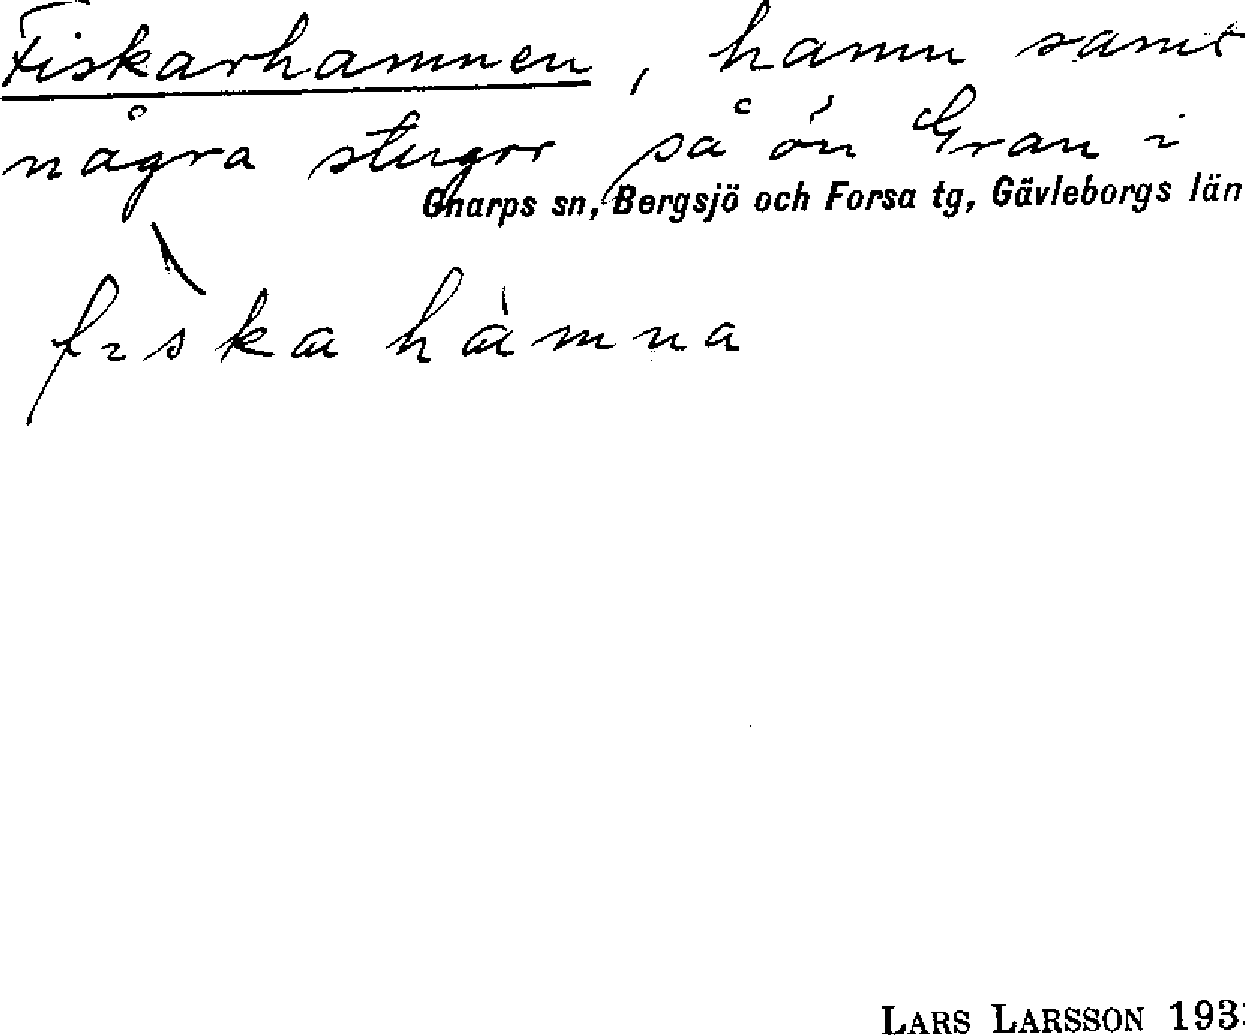 Fiskarhamnen, hamn samt
några stugor på ön Gran i
Gnarps sn, Bergsjö och Forsa tg, Gävleborgs län
fìska hàmna
LARS LARSSON 193